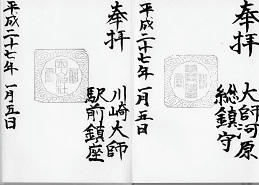 奉拝
大師河原
総鎮守
平成二十七年 一月五日
奉拝
川崎大師
駅前鎮座
平成二十七年 一月五日